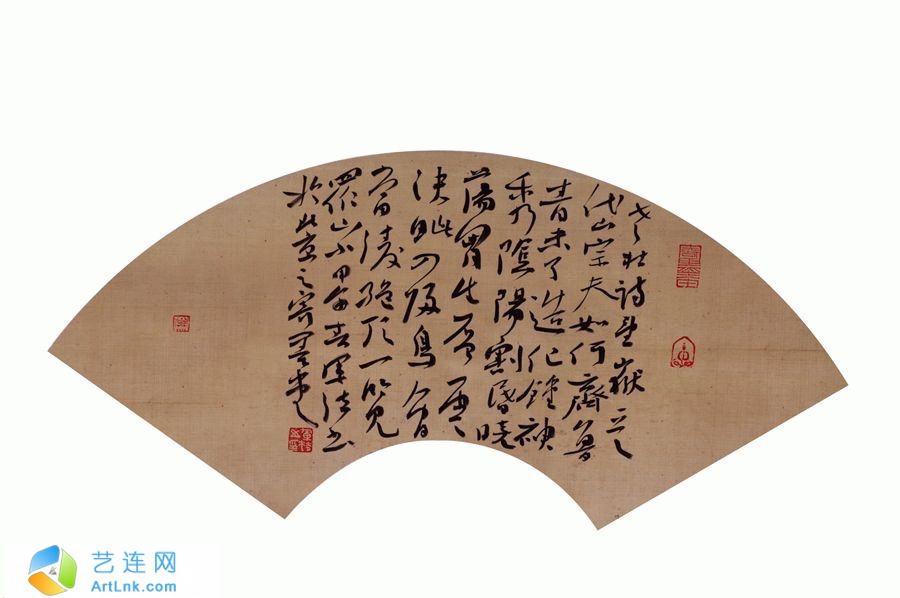 老杜詩望嶽
岱宗夫如何齊魯
青未了造化鍾神
秀陰陽割昏曉
蕩胷生層雲
決眥入歸鳥會
當凌絕頂一覽
眾山小甲午 書
於北京之
艺连网
ArtLnk.com